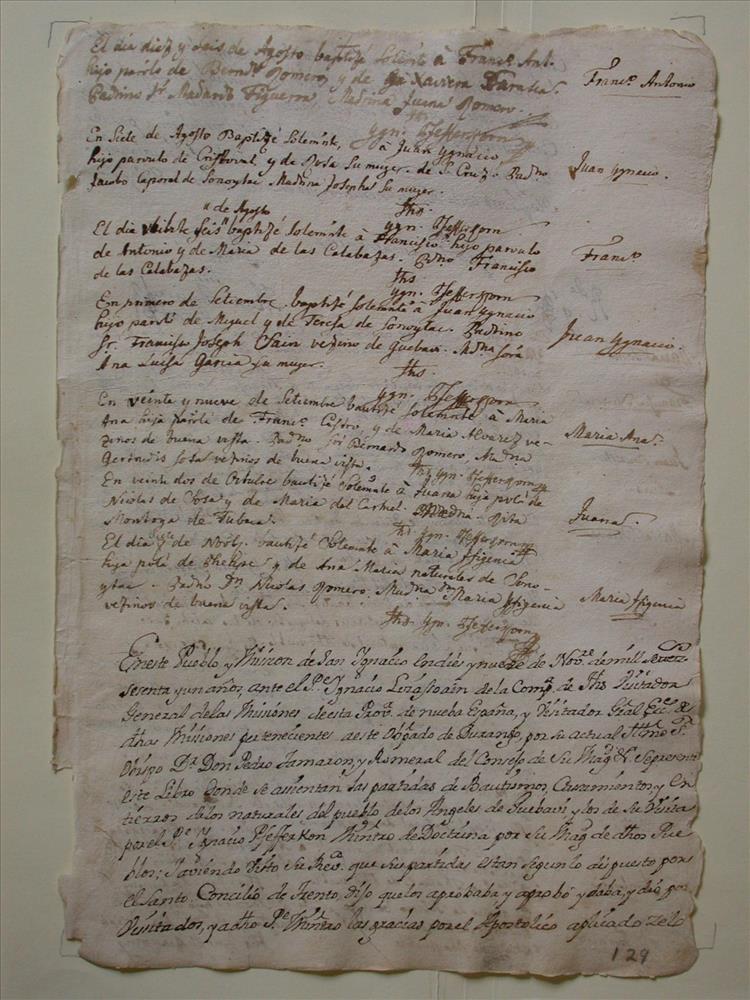 El dia diez y seis de Agosto baptizé Solemte à Franco. Anto.
hijo parlo de Berndo. Romero, y de Ga. Xaviera
Padrino Dn. Manuel Figueroa Madrina Juana Romero.
Franco. Antonio
Jhs
Ygn. Pfefferkorn
En Siete de Agosto Baptizé Solemnte, à Juan Ygnacio,
hijo parvulo de Cristoval, y de Rosa Su muger. de S. Cruz. Padno
Jacobo Caporal de Sonoytac Madrina Josepha Su muger.
Juan Ygnacio.
Jhs.
Ygn. Pfefferkorn
" de Agosto
El dia Veinte Seis baptizé Solemnte à Francisco hijo parvulo
de Antonio y de Maria de las Calabazas. Padno Francisco
de las Calabazas.
Franco.
Jhs
Ygn. Pfefferkorn
En primero de Setiembre baptizé Solemnte à Juan Ygnacio
hijo parvlo de Miguel y de Teresa de Sonoytac. Padrino
Sr. Francisco Joseph vezino de Guebavi. Madna Sora
Ana Luisa Garcia su muger.
Juan Ygnacio.
Jhs.
Ygn. Pfefferkorn
En veinta y nueve de Setiembre bautizé Solemnte à Maria
Ana hija parvla de Franco. Castro, y de Maria Alvarez ve-
zinos de buena vista. Padno Sor Bernardo Romero, Madna
Gertrudis Sosa vezinos de buena vista.
Maria Ana.
Jhs Ygn. Pfefferkorn
En veinta dos de Octubre bautizé Solemnte à Juana hija parvla de
Nicolas de Sosa y de Maria del Carmel. Madrina Rita
Montoya de Tubaca.
Juana.
Jhs Ygn. Pfefferkorn
El dia de Novbre. bautizé Solemnte à Maria Ifigenia
hija parvla de Phelipe y de Ana Maria naturales de Sono-
ytac. Padno Dn Nicolas Romero. Madna Da Maria Ifigenia
vezinos de buena vista.
Maria Ifigenia
Jhs Ygn. Pfefferkorn
En este Pueblo y Mission de San Ignacio en dies y nueve de Nove. de mill setezs.
sesenta y un años, ante el Pe. Ignacio Lizassoain de la Compa. de Jhs Visitador
General de las Missiones de esta Prova. de nueba España, y Visitador Gral
dhas Missiones pertenecientes a este Obispado de Durango, por su actual Illmo Sr.
Obispo Dr. Don Pedro Tamaron, y Romeral del Consejo de Su Magd. Se presentò
este Libro donde se assientan las partidas de Bautismos, Casamientos, y En
tierros de los naturales del pueblo de los Angeles de Guebavi y los de su Visita
por el Pe. Ignacio Pfefferkon Ministro de Doctrina por Su Magd. de dhos Pue
blos; haviendo Visto Su Reva. que sus partidas estan segun lo dispuesto por
el Santo Concilio de Trento, dixo que los aprobaba y aprobó y daba, y dió por
Visitados, y a dho Pe. Ministro las gracias por el Apostolico aplicado zelo
129